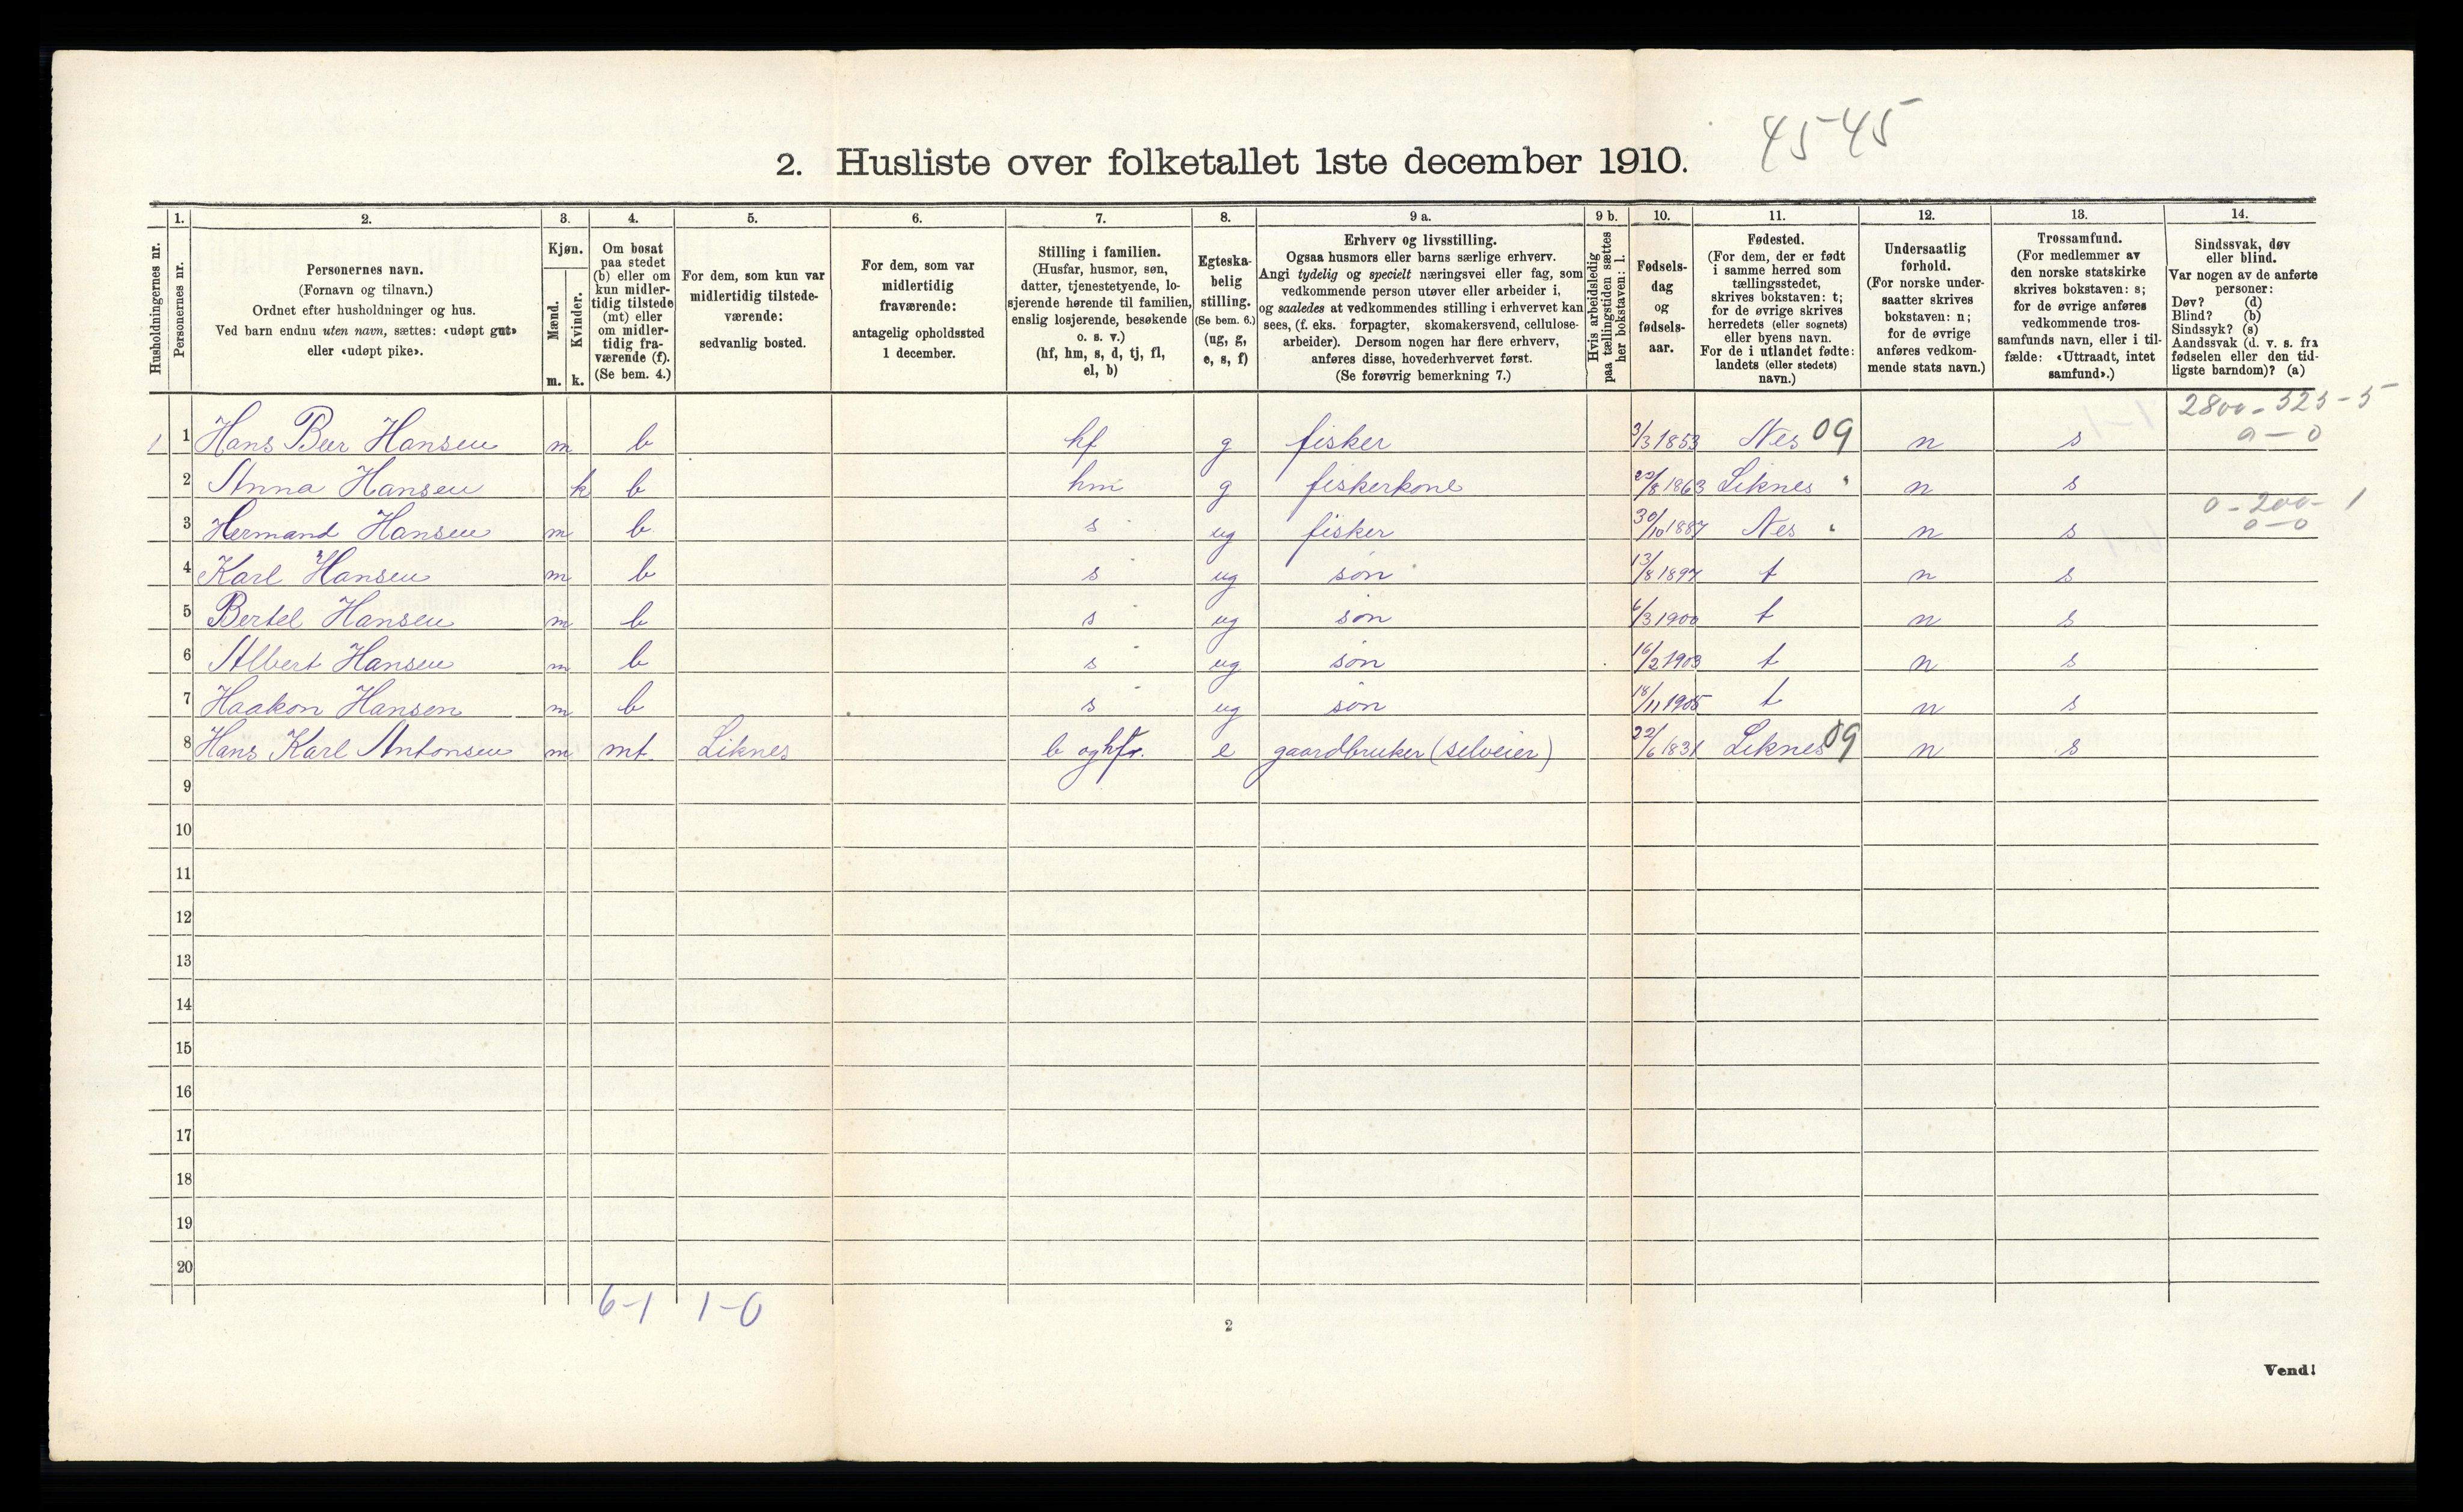 45-45
2. Husliste over folketallet 1ste december 1910.
Husholdningernes nr.
1.
Personernes nr.
2.
Personernes navn.
(Fornavn og tilnavn.)
Ordnet efter husholdninger og hus.
Ved barn endnu uten navn, sættes: «udøpt gut»
eller «udøpt pike».
3.
Kjøn.
Mænd.
Kvinder.
m. k.
4.
Om bosat
paa stedet
(b) eller om
kun midler-
tidig tilstede
(mt) eller
om midler-
tidig fra-
værende (f).
(Se bem. 4.)
5.
For dem, som kun var
midlertidig tilstede-
værende:
sedvanlig bosted.
6.
For dem, som var
midlertidig
fraværende:
antagelig opholdssted
1 december.
7.
Stilling i familien.
(Husfar, husmor, søn,
datter, tjenestetyende, lo-
sjerende hørende til familien,
enslig losjerende, besøkende
o. s. v.)
(hf, hm, s, d, tj, fl,
el, b)
8.
Egteska-
belig
stilling.
(Se bem. 6.)
(ug, g,
e, s, f)
9 a.
Erhverv og livsstilling.
Ogsaa husmors eller barns særlige erhverv.
Angi tydelig og specielt næringsvei eller fag, som
vedkommende person utøver eller arbeider i,
og saaledes at vedkommendes stilling i erhvervet kan
sees, (f. eks. forpagter, skomakersvend, cellulose-
arbeider). Dersom nogen har flere erhverv,
anføres disse, hovederhvervet først.
(Se forøvrig bemerkning 7.)
9 b.
Hvis arbeidsledig
paa tællingstiden sættes
her bokstaven: l.
10.
Fødsels-
dag
og
fødsels-
aar.
11.
Fødested.
(For dem, der er født
i samme herred som
tællingsstedet,
skrives bokstaven: t;
for de øvrige skrives
herredets (eller sognets)
eller byens navn.
For de i utlandet fødte:
landets (eller stedets)
navn.)
12.
Undersaatlig
forhold.
(For norske under-
saatter skrives
bokstaven: n;
for de øvrige
anføres vedkom-
mende stats navn.)
13.
Trossamfund.
(For medlemmer av
den norske statskirke
skrives bokstaven: s;
for de øvrige anføres
vedkommende tros-
samfunds navn, eller i til-
fælde: «Uttraadt, intet
samfund».)
14.
Sindssvak, døv
eller blind.
Var nogen av de anførte
personer:
Døv? (d)
Blind? (b)
Sindssyk? (s)
Aandssvak (d. v. s. fra
fødselen eller den tid-
ligste barndom)? (a)
2800-525-5
1 1 Hans Beer Hansen m b hf g fisker 3/3 1853 Nes 09 n s 0-0
2 Anna Hansen k b hm g fiskerkone 22/8 1863 Liknes " n s
0-200-1
3 Hermand Hansen m b s ug fisker 30/10 1887 Nes " n s 0-0
4 Karl Hansen m b s ug søn 13/8 1897 t n s
5 Bertel Hansen m b s ug søn 6/3 1900 t n s
6 Albert Hansen m b s ug søn 16/2 1903 t n s
7 Haakon Hansen m b s ug søn 18/11 1905 t n s
8 Hans Karl Antonsen m mt Liknes b og hfr. e gaardbruker (selveier) 22/6 1831 Liknes 09 n s
9
10
11
12
13
14
15
16
17
18
19
20
6-1 1-0
2
Vend!